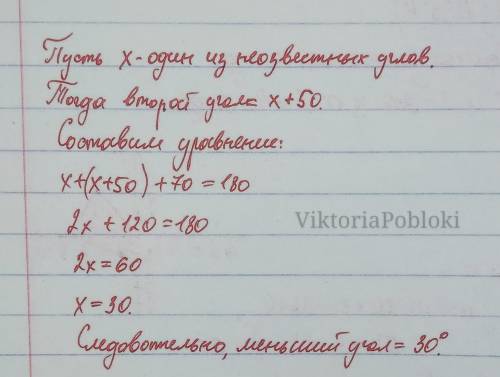 Пусть x - один из неизвестных углов.
Тогда второй угол = x + 50.
Составим уравнение:
x+(x+50)+70=180
2x + 120 = 180
ViktoriaPobloki
2x = 60
x = 30.
Следовательно, меньший угол = 30°.